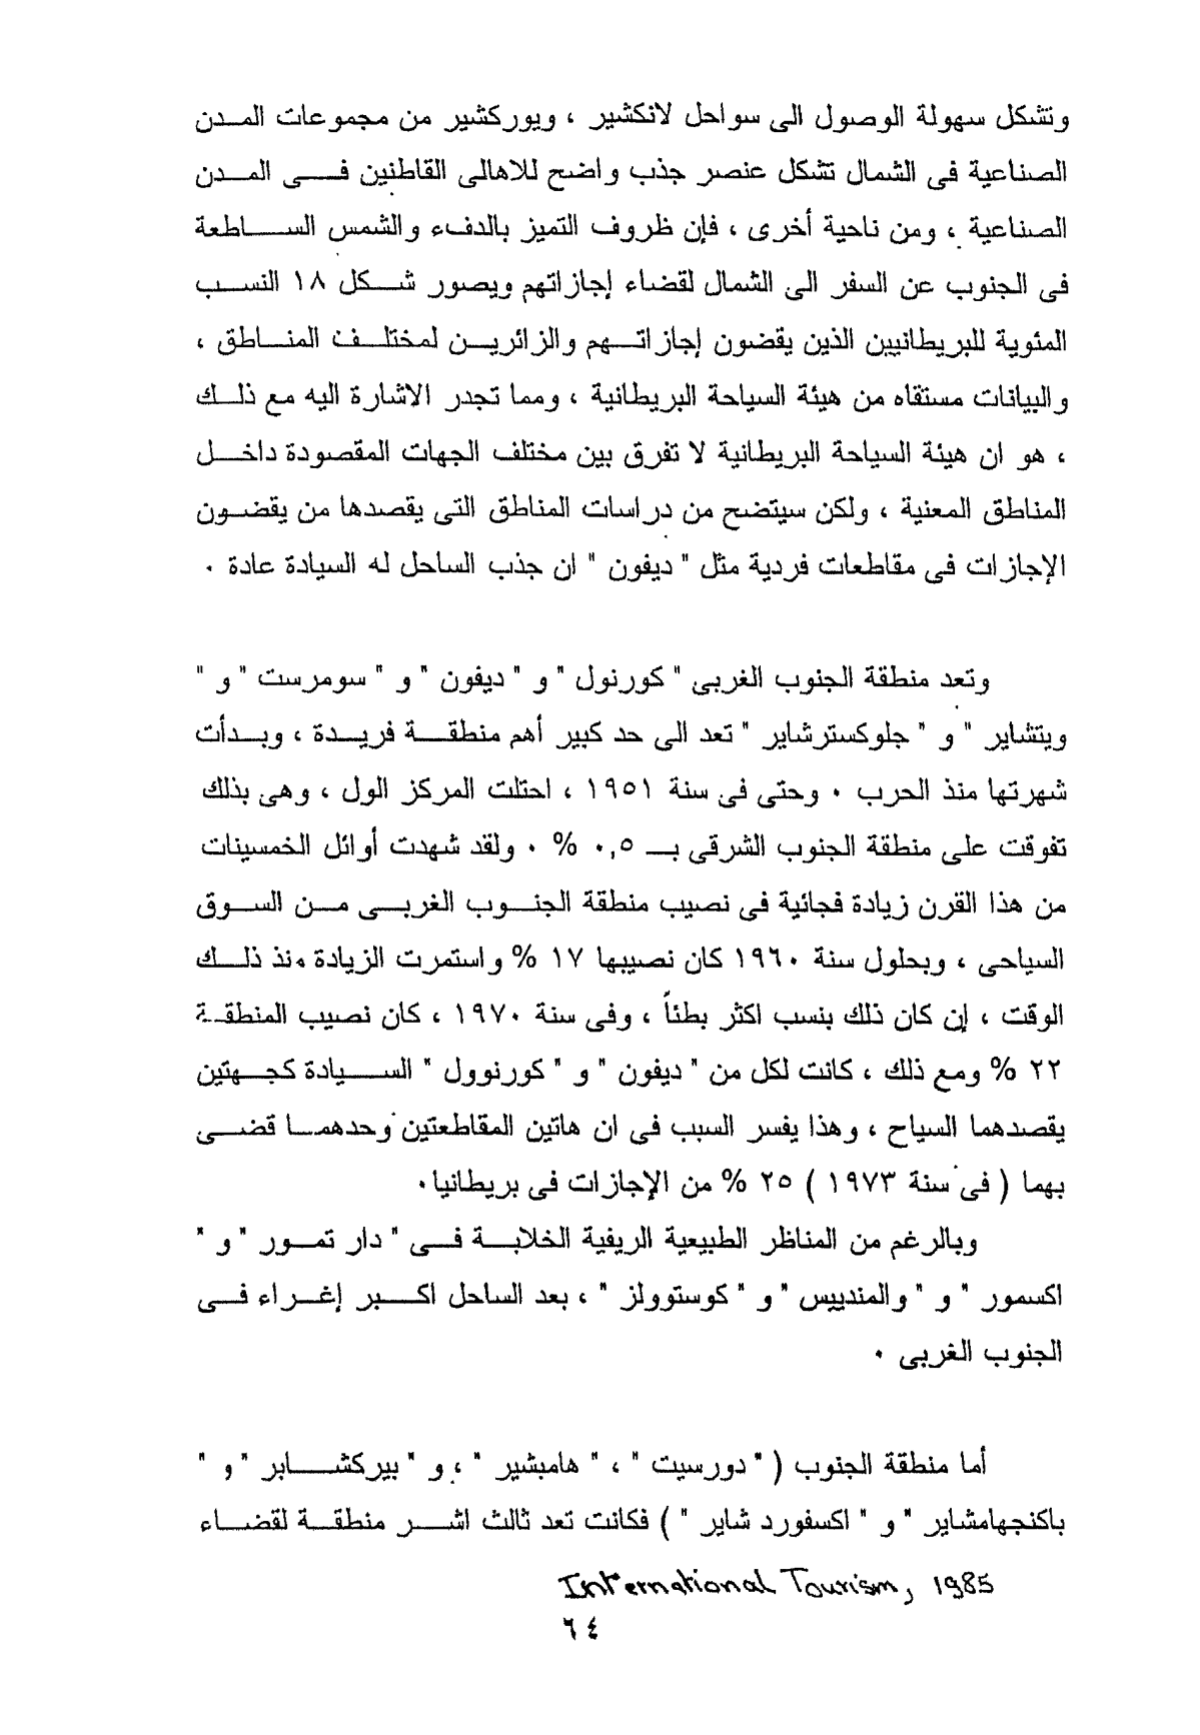 وتشكل سهولة الوصول الى سواحل لانكشير ، ويوركشير من مجموعات المدن
الصناعية فى الشمال تشكل عنصر جذب واضح للاهالى القاطنين فى المدن
الصناعية ، ومن ناحية أخرى ، فإن ظروف التميز بالدفء والشمس الساطعة
فى الجنوب عن السفر الى الشمال لقضاء إجازاتهم ويصور شكل ١٨ النسب
المئوية للبريطانيين الذين يقضون إجازاتهم والزائرين لمختلف المناطق ،
والبيانات مستقاه من هيئة السياحة البريطانية ، ومما تجدر الاشارة اليه مع ذلك
، هو ان هيئة السياحة البريطانية لا تفرق بين مختلف الجهات المقصودة داخل
المناطق المعنية ، ولكن سيتضح من دراسات المناطق التى يقصدها من يقضون
الإجازات فى مقاطعات فردية مثل " ديفون " ان جذب الساحل له السيادة عادة ٠
وتعد منطقة الجنوب الغربى " كورنول " و " ديفون " و " سومرست " و "
ويتشاير " و " جلوكسترشاير " تعد الى حد كبير أهم منطقة فريدة ، وبدأت
شهرتها منذ الحرب ٠ وحتى فى سنة ١٩٥١ ، احتلت المركز الول ، وهى بذلك
تفوقت على منطقة الجنوب الشرقى بـ ٠,٥ % ٠ ولقد شهدت أوائل الخمسينات
من هذا القرن زيادة فجائية فى نصيب منطقة الجنوب الغربى من السوق
السياحى ، وبحلول سنة ١٩٦٠ كان نصيبها ١٧ % واستمرت الزيادة منذ ذلك
الوقت ، إن كان ذلك بنسب اكثر بطئاً ، وفى سنة ١٩٧٠ ، كان نصيب المنطقة
٢٢ % ومع ذلك ، كانت لكل من " ديفون " و " كورنوول " السيادة كجهتين
يقصدهما السياح ، وهذا يفسر السبب فى ان هاتين المقاطعتين وحدهما قضى
بهما ( فى سنة ١٩٧٣ ) ٢٥ % من الإجازات فى بريطانيا٠
وبالرغم من المناظر الطبيعية الريفية الخلابة فى " دار تمور " و "
اكسمور " و " والمندييس " و " كوستوولز " ، بعد الساحل اكبر إغراء فى
الجنوب الغربى ٠
أما منطقة الجنوب ( " دورسيت " ، " هامبشير " ، و " بيركشابر " و "
باكنجهامشاير " و " اكسفورد شاير " ) فكانت تعد ثالث اشر منطقة لقضاء
International Tourism, 1985
٦٤